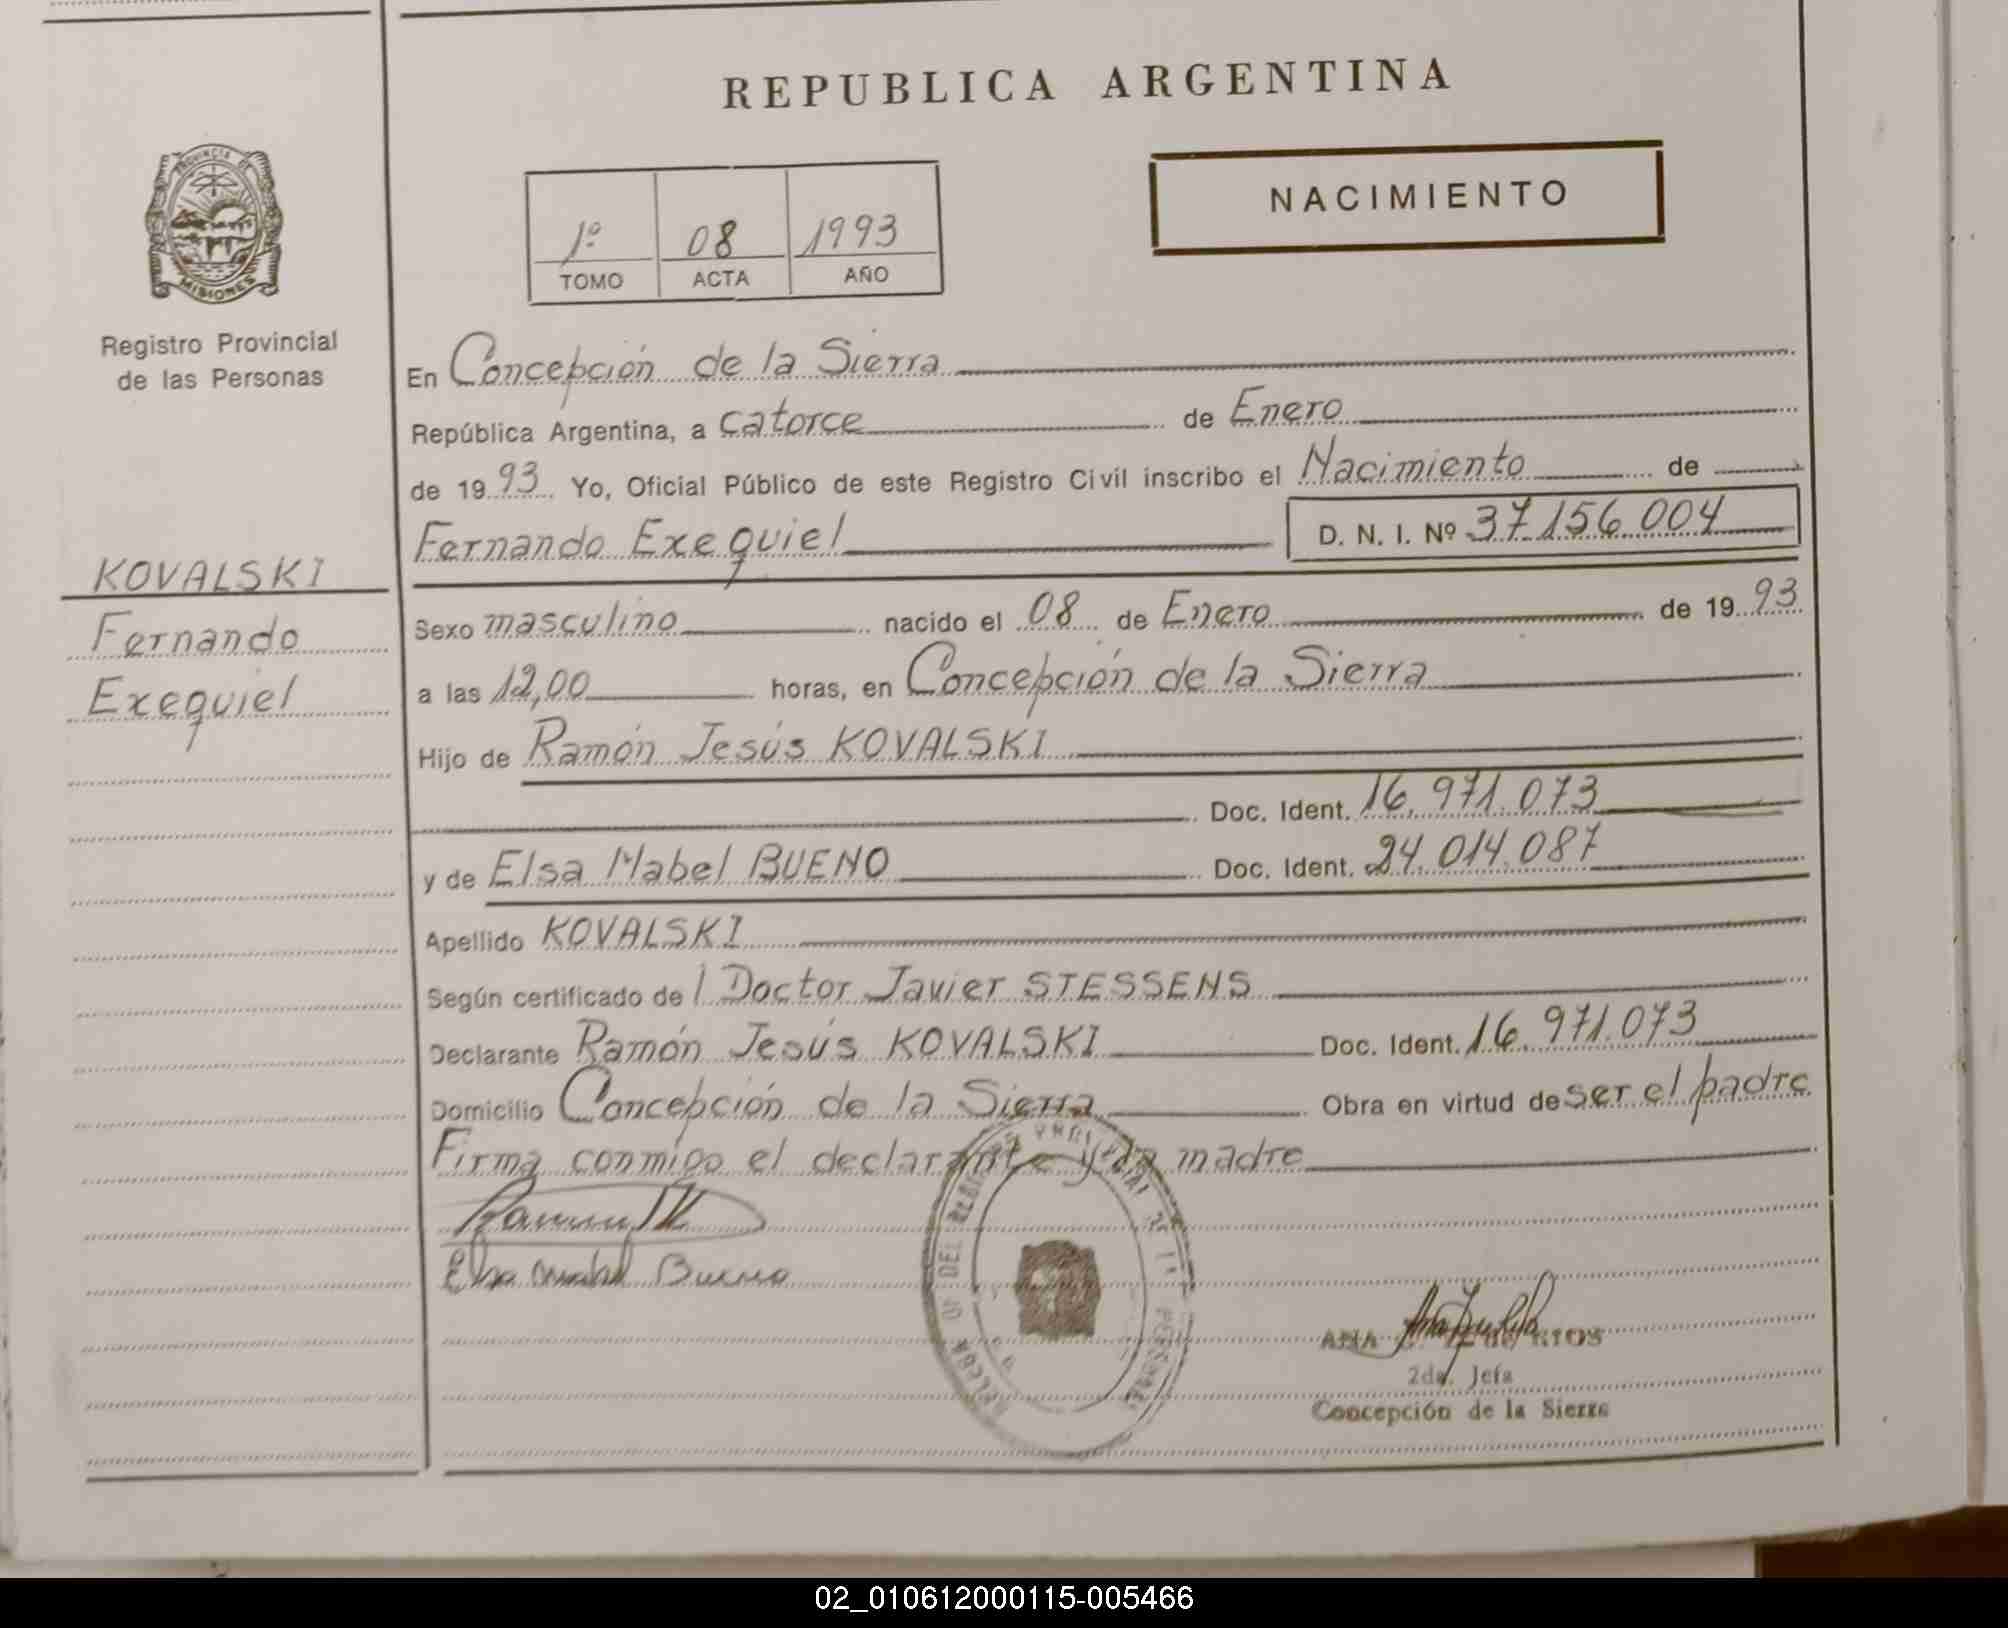 REPUBLICA ARGENTINA
NACIMIENTO
1º 08 1993
TOMO ACTA AÑO
PROVINCIA DE
MISIONES
Registro Provincial
de las Personas
KOVALSKI
Fernando
Exequiel
En Concepción de la Sierra
República Argentina, a catorce de Enero
de 1993 Yo, Oficial Público de este Registro Civil inscribo el Nacimiento de
Fernando Exequiel D. N. I. Nº 37.156.004
Sexo masculino nacido el 08 de Enero de 1993
a las 12,00 horas, en Concepción de la Sierra
Hijo de Ramón Jesús KOVALSKI
Doc. Ident. 16.971.073
y de Elsa Mabel BUENO Doc. Ident. 24.014.087
Apellido KOVALSKI
Según certificado del Doctor Javier STESSENS
Declarante Ramón Jesús KOVALSKI Doc. Ident. 16.971.073
Domicilio Concepción de la Sierra Obra en virtud de ser el padre
Firma conmigo el declarante y la madre
Elsa Mabel Bueno
ANA de RIOS
2da. Jefa
Concepción de la Sierra
02_010612000115-005466